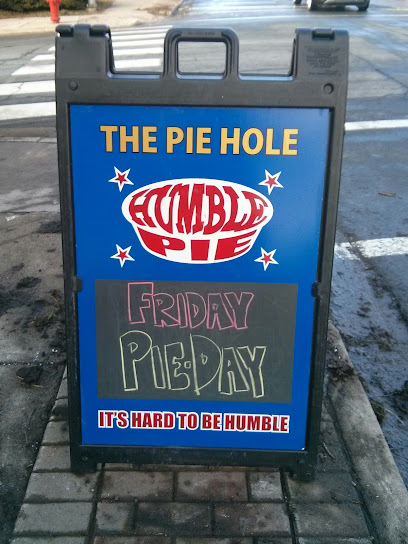 THE PIE HOLE
HUMBLE
PIE
FRIDAY
PIE-DAY
IT'S HARD TO BE HUMBLE